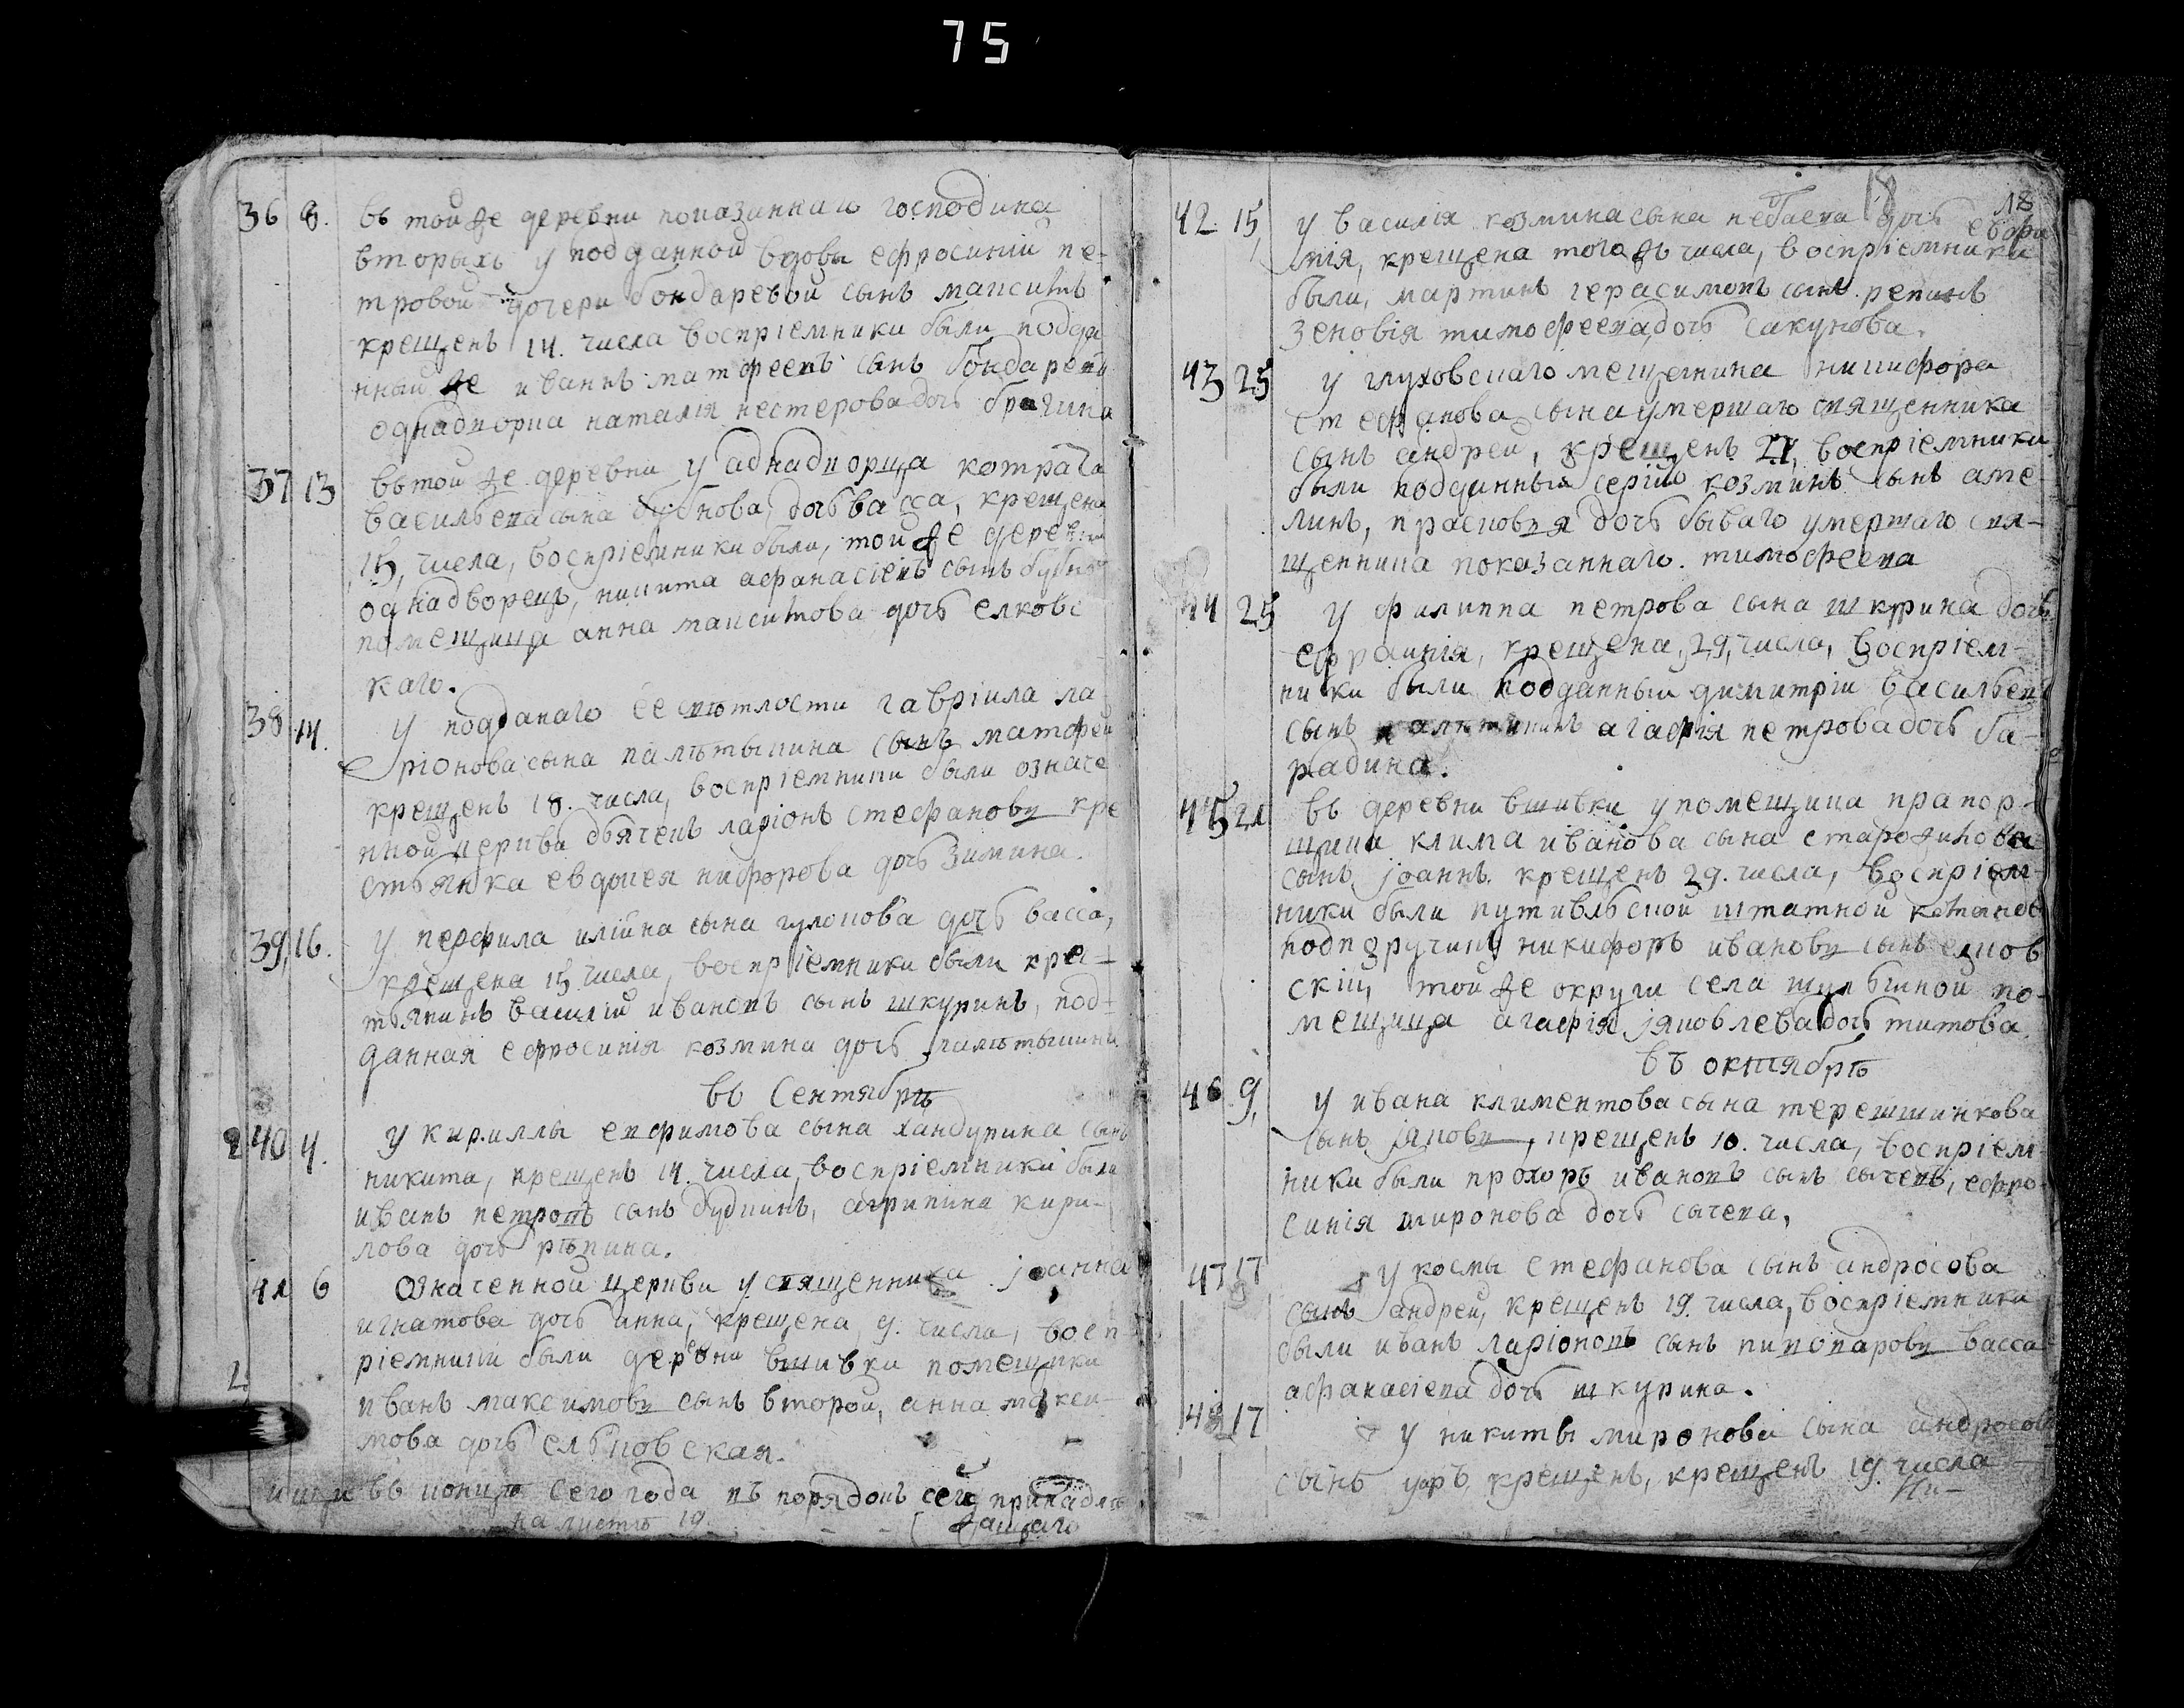 75
36 8. въ той же деревни показаннаго господина
вторыхъ у подданной вдовы ефросиніи пе-
тровой дочери бондаревой сынъ максимъ
крещенъ 14. числа воспріемники были подда
нный же иваннъ матфеевъ сынъ бондарев
однадворка наталія нестерова дочь брагина
37 13 въ той же деревни у аднадворца
васильева сына бубнова, дочь васса, крещена
15, числа, воспріемники были, той же деревни
однадворецъ, никита афанасіевъ сынъ
помещица анна максимова дочь елковс
каго.
38 14. у подданаго ее свѣтлости гавріила ла
ріонова сына палѣтыкина сынъ матфей
крещенъ 18. числа, воспріемники были означе
нной церкви дьячекъ ларіонъ стефановъ кре
стьянка евдокея никфорова дочь зимина.
39, 16. у перфила иліина сына дочь васса,
крещена 15 числа, воспріемники были крес-
тьянинъ василій ивановъ сынъ шкуринъ, под-
данная ефросинія козмина дочь палѣтыкина
въ Сентябрѣ
2 40 4. у кириллы евфимова сына хандурина сынъ
никита, крещенъ 14. числа, воспріемники были
иванъ петровъ сынъ будкинъ, агрипина кири-
лова дочь рѣпина.
41 6 означенной церкви у священника іоанна
игнатова дочь анна, крещена, 9. числа, восп
ріемники были деревни вшивки помещики
иванъ максимовъ сынъ второй, анна макси-
мова дочь ельковская.
ищи въ концѣ сего года въ порядокъ сей принадлѣ
на листѣ 19. жащаго
18
18
42 15, у василія козмина сына небаева дочь евфи
мія, крещена тогожъ числа, воспріемники
были, мартинъ герасимовъ сынъ репинъ
зеновія тимофеева дочь сакунова.
43 25 у глуховскаго мещенина никифора
стефанова сына умершаго священника
сынъ андрей, крещенъ 27, воспріемники
были подданный сергій козминъ сынъ аме-
линъ, прасковя дочь бываго умершаго свя-
щенника показаннаго. тимофеева
44 25 у филиппа петрова сына шкурина дочь
ефросинія, крещена, 29, числа, воспріем-
ники были подданный димитрій васильевъ
сынъ агафія петрова дочь ба-
радина.
45 21 въ деревни вшивки у помещика прапор-
щика клима иванова сына старожилова
сынъ іоаннъ. крещенъ 29. числа, воспріем-
ники были путивльской штатной команды
подпоручикъ никифоръ ивановъ сынъ елков
скій, той же округи села шулькиной по-
мещица агафія іяковлева дочь титова.
въ октябрѣ
46 9, у ивана климентова сына терешшинкова
сынъ іяковъ, крещенъ 10. числа, воспріем-
ники были прохоръ ивановъ сынъ сычевъ, ефро-
синія миронова дочь сычева,
47 17 у космы стефанова сынъ андросова
сынъ андрей, крещенъ 19. числа, воспріемники
были иванъ ларіоновъ сынъ васса
афанасіева дочь шкурина.
48 17 у никиты миронова сына андросова
сынъ крещенъ, крещенъ 19. числа